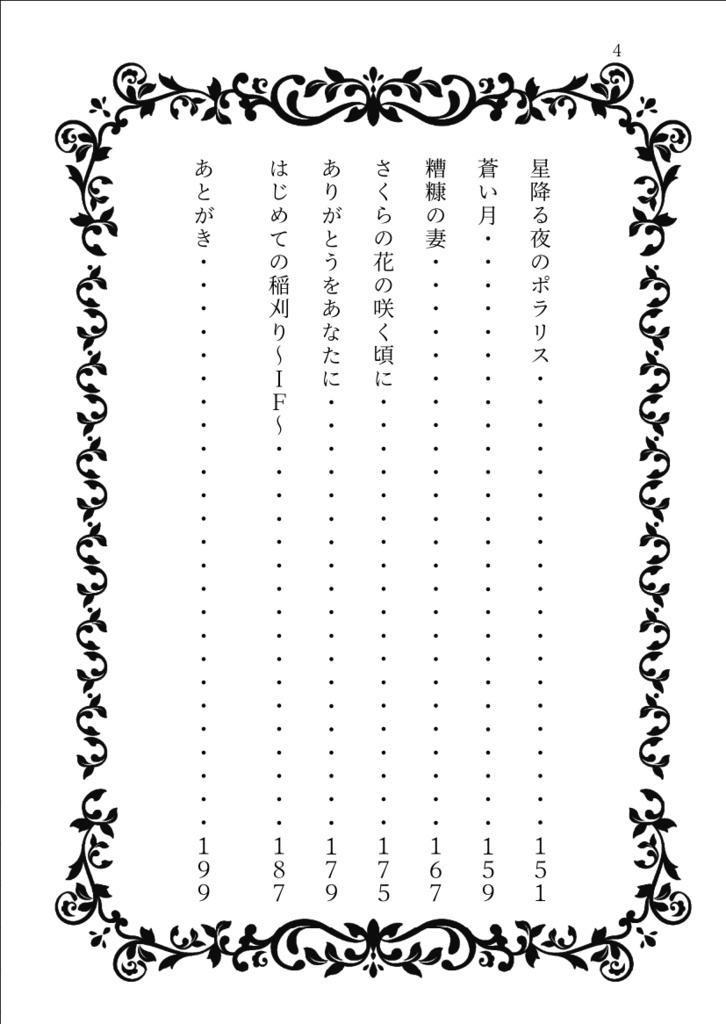 4
星降る夜のポラリス・・・・・・・・・・・・・・・・・・・・151
蒼い月・・・・・・・・・・・・・・・・・・・・・・・・・・159
糟糠の妻・・・・・・・・・・・・・・・・・・・・・・・・・167
さくらの花の咲く頃に・・・・・・・・・・・・・・・・・・・175
ありがとうをあなたに・・・・・・・・・・・・・・・・・・・179
はじめての稲刈り～IF～・・・・・・・・・・・・・・・・・187
あとがき・・・・・・・・・・・・・・・・・・・・・・・・・199